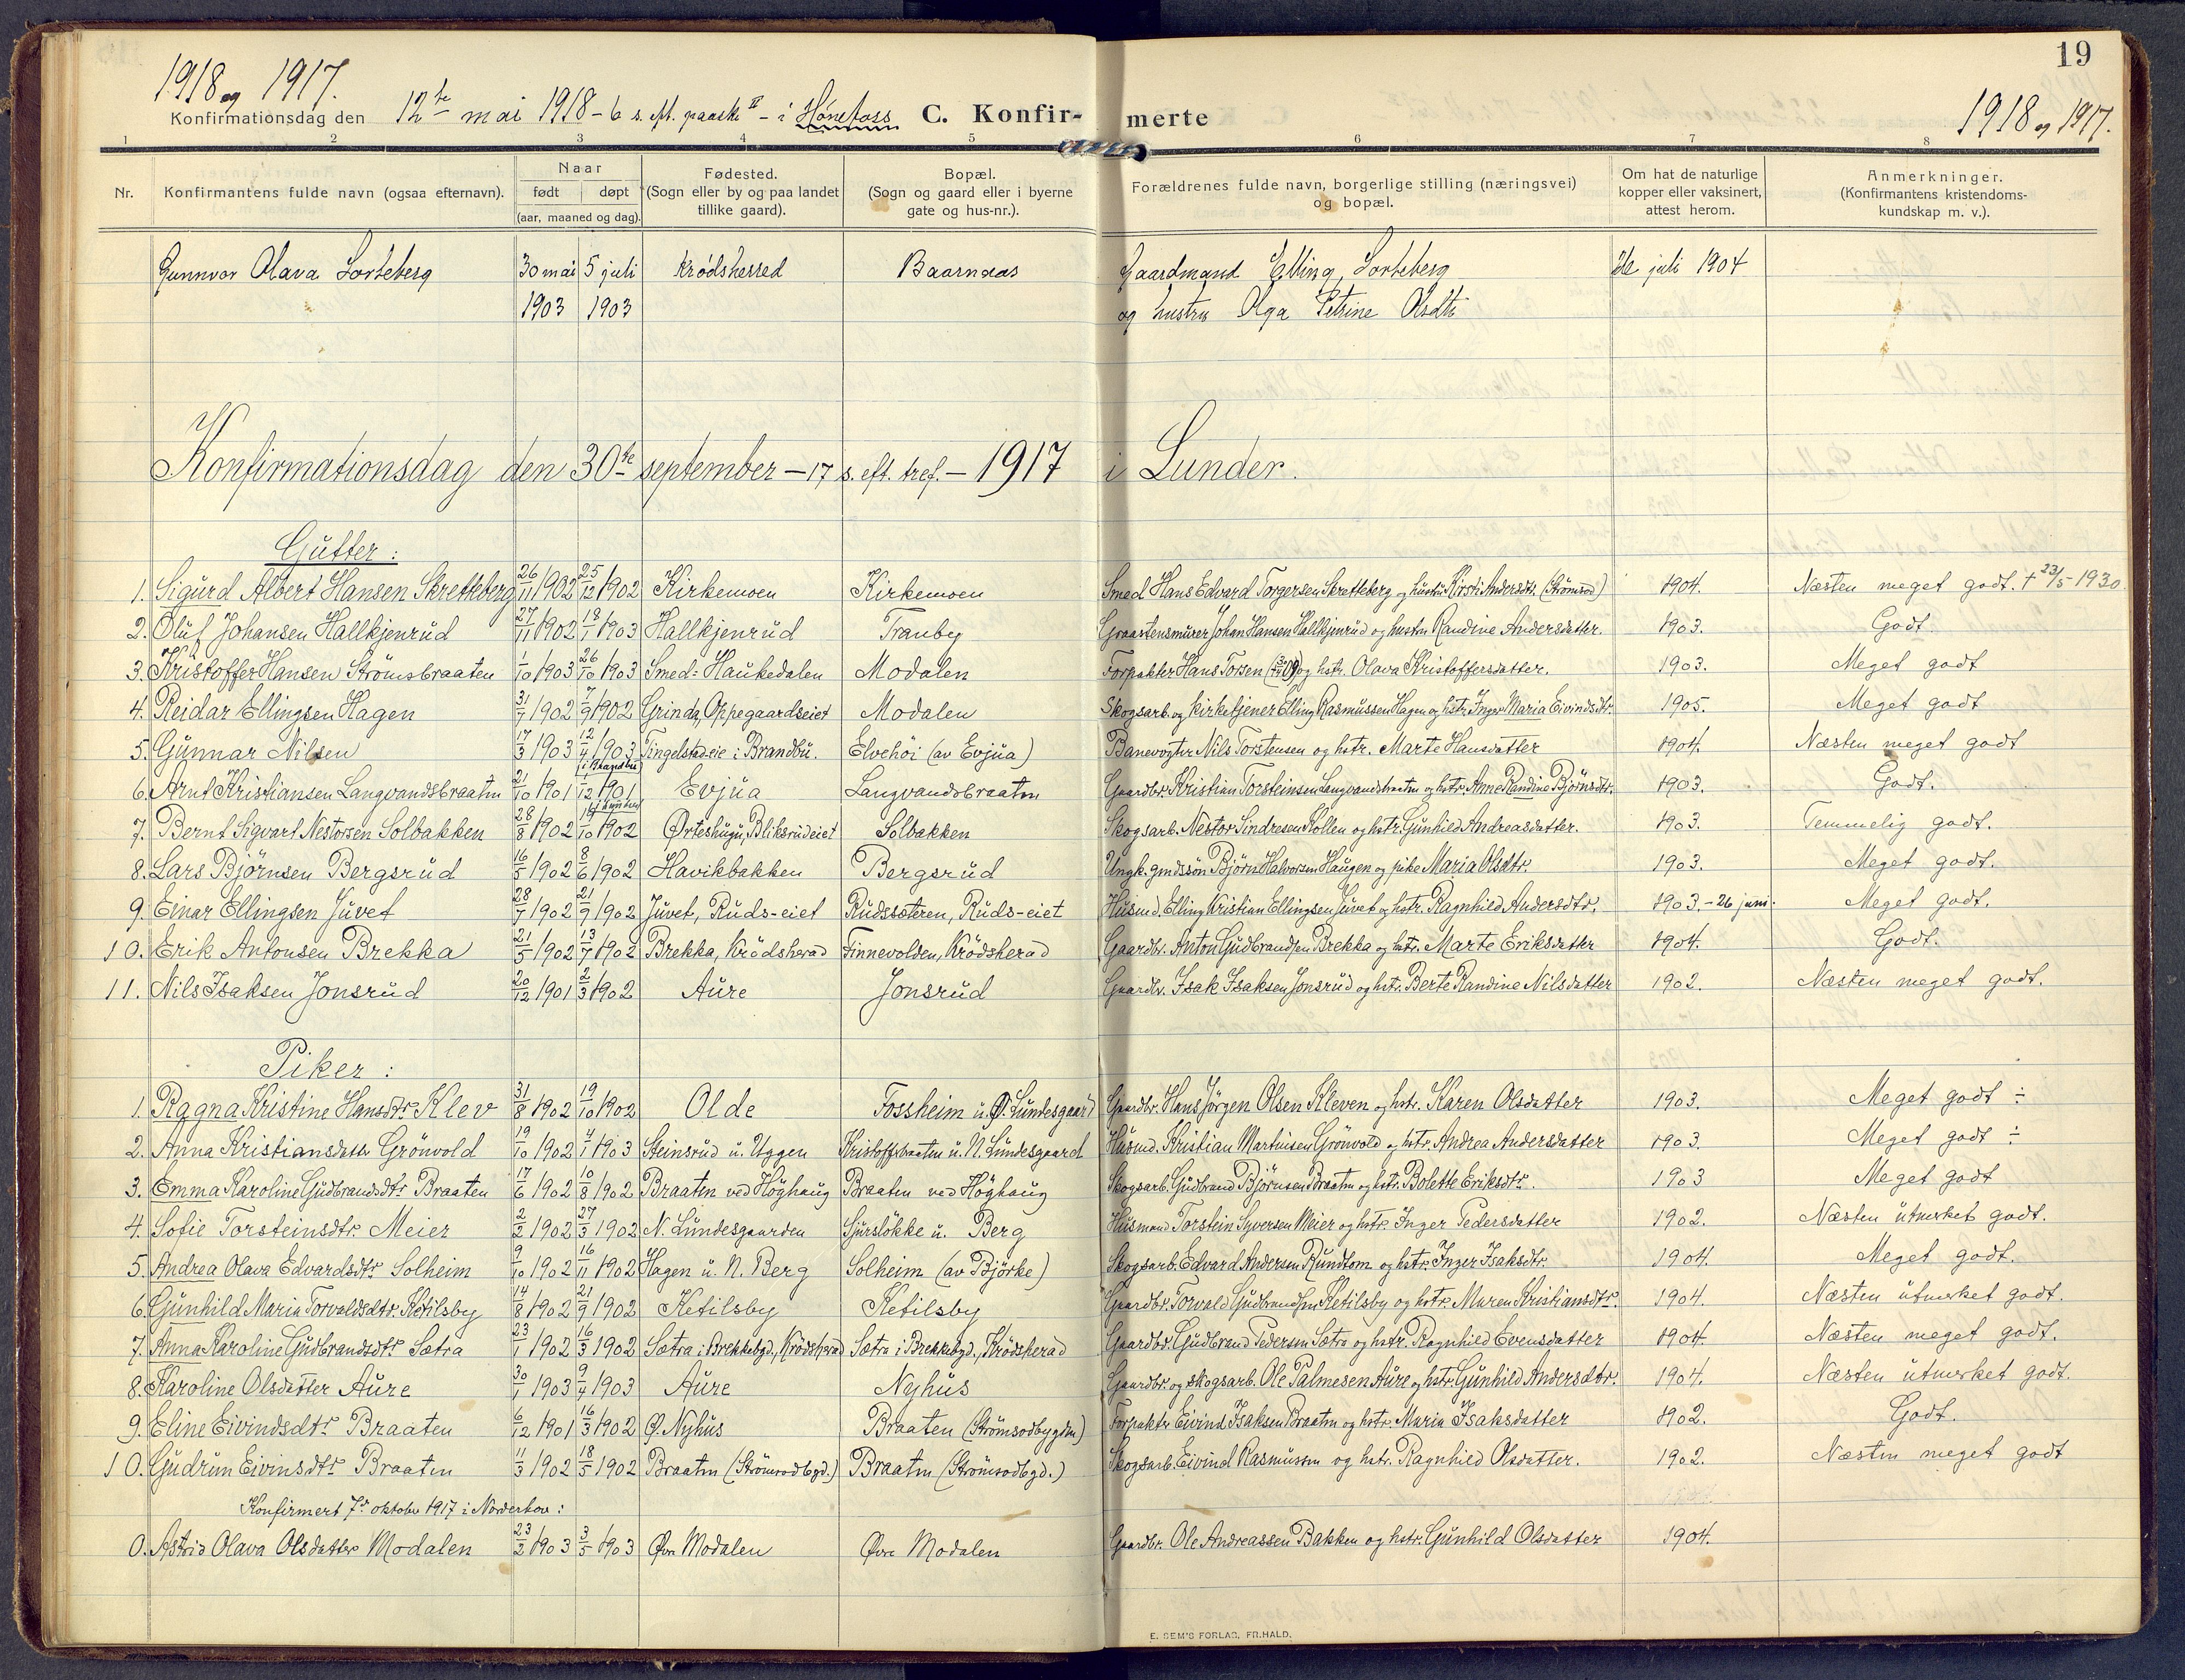 19
1918 og 1917. 1918 og 1917.
Konfirmationsdag den 12te mai 1918 - 6 s. eft. paaske II - i Hønefoss C. Konfir- merte
1 2 3 4 5 6 7 8
Nr. Konfirmantens fulde navn (ogsaa efternavn). Naar født døpt (aar, maaned og dag). Fødested. (Sogn eller by og paa landet tillike gaard). Bopæl. (Sogn og gaard eller i byerne gate og hus-nr.). Forældrenes fulde navn, borgerlige stilling (næringsvei) og bopæl. Om hat de naturlige kopper eller vaksinert, attest herom. Anmerkninger. (Konfirmantens kristendoms-kundskap m. v.).
Gunnvor Olava Sorteberg 30 mai 5 juli Krødsherred Baarnaas Gaardmand Elling Sorteberg juli 1904
1903 1903 og hustru Olga Petrine Olsdtr
Konfirmationsdag den 30te september - 17 s. eft. tref. - 1917 i Lunder.
Gutter:
1. Sigurd Albert Hansen Skretteberg 26/11 1902 25/12 1902 Kirkemoen Kirkemoen Smed Hans Edvard Torgersen Skretteberg og hustru Kirsti Andersdtr. (Strømsod) 1904. Næsten meget godt. † 23/5-1930
2. Oluf Johansen Hallkjenrud 27/11 1902 18/1 1903 Hallkjenrud Tranby Graastensmurer Johan Hansen Hallkjenrud og hustru Randine Andersdatter. 1903. Godt.
3. Kristoffer Hansen Strömsbraaten 1/10 1903 26/10 1903 Smed: Haukedalen Modalen Forpakter Hans Torsen og hstr. Olava Kristoffersdatter. 1903. Meget godt
4. Reidar Ellingsen Hagen 31/7 1902 7/9 1902 Grinda, Oppegaardseiet Modalen Skogsarb. og kirketjener Elling Rasmussen Hagen og hstr. Inger Maria Eivindsdtr. 1905. Meget godt
5. Gunnar Nilsen 17/3 1903 12/4 1903 i Brandbu Tingelstad-eie i Brandbu. Elvehöi (av Evjua) Banevogter Nils Torstensen og hstr. Marte Hansdatter 1904. Næsten meget godt
6. Arnt Kristiansen Langvandsbraatm 21/10 1901 1/12 1901 Evjua Langvandsbraatm Gaardbr. Kristian Torsteinsen Langvandsbraatm og hstr. Anne Randine Björnsdtr. 1903. Godt.
7. Bernt Sigvart Nestorsen Solbakken 28/8 1902 19/10 1902 Ørteshugu, Bliksrudeiet Solbakken Skogsarb. Nestor Sindresen Kollen og hstr. Gunhild Andreasdatter. 1903. Temmelig godt.
8. Lars Björnsen Bergsrud 16/5 1902 8/6 1902 Havikbakken Bergsrud Ungk. gmdssön Björn Halvorsen Haugen og pike Maria Olsdtr. 1903. Meget godt.
9. Einar Ellingsen Juvet 28/7 1902 21/9 1902 Juvet, Ruds-eiet Rudssæteren, Ruds-eiet Husmd. Elling Kristian Ellingsen Juvet og hstr. Ragnhild Andersdtr. 1903. - 26 juni. Meget godt.
10. Erik Antonsen Brekka 21/5 1902 13/7 1902 Brekka, Krödsherad Finnevolden, Krödsherad Gaardbr. Anton Gudbrandsen Brekka og hstr. Marte Eriksdatter 1904. Godt.
11. Nils Isaksen Jonsrud 20/12 1901 2/3 1902 Aure Jonsrud Gaardbr. Isak Isaksen Jonsrud og hstr. Berte Randine Nilsdatter 1902. Næsten meget godt.
Piker:
1. Ragna Kristine Hansdtr. Klev 31/8 1902 19/10 1902 Olde Fossheim u. Ø. Lundesgaard Gaardbr. Hans Jörgen Olsen Kleven og hstr. Karen Olsdatter 1903. Meget godt ÷
2. Anna Kristiansdatter Grönvold 19/10 1902 4/1 1903 Steinsrud u. Uggen Kristoffersbraaten u. N. Lundesgaard Husmd. Kristian Martinsen Grönvold og hstr. Andrea Andersdatter 1903. Meget godt ÷
3. Emma Karoline Gudbrandsdtr. Braaten 17/6 1902 10/8 1902 Braaten ved Höghaug Braaten ved Höghaug Skogsarb. Gudbrand Björnsen Braaten og hstr. Bolette Eriksdtr. 1903 Meget godt
4. Sofie Torsteinsdtr. Meier 2/2 1902 27/3 1902 N. Lundesgaarden Sjurslökke u. Berg Husmand Torstein Syversen Meier og hstr. Inger Pedersdatter 1902. Næsten utmerket godt.
5. Andrea Olava Edvardsdtr. Solheim 9/10 1902 16/11 1902 Hagen u. N. Berg Solheim (av Björke) Skogsarb. Edvard Andersen Rundtom og hstr. Inger Isaksdtr. 1904. Meget godt.
6. Gunhild Maria Torvaldsdtr. Ketilsby 14/8 1902 21/9 1902 Ketilsby Ketilsby Gaardbr. Torvald Gudbrandsen Ketilsby og hstr. Maren Kristiansdtr. 1904. Næsten utmerket godt.
7. Anna Karoline Gudbrandsdtr. Sætra 23/1 1902 16/3 1902 Sætra i Brekkebygd., Krödsherad Sætra i Brekkebygd., Krödsherad Gaardbr. Gudbrand Pedersen Sætra og hstr. Ragnhild Evensdatter 1904 Næsten meget godt.
8. Karoline Olsdatter Aure 30/1 1903 9/4 1903 Aure Nyhus Gaardbr. og skogsarb. Ole Palmesen Aure og hstr. Gunhild Andersdtr. 1904. Næsten utmerket godt.
9. Eline Eivindsdtr. Braaten 6/12 1901 16/3 1902 Ø. Nyhus Braaten (Strömsodbygdm) Forpakter Eivind Isaksen Braatm og hstr. Maria Isaksdatter 1902. Godt.
10. Gudrun Eivinsdtr. Braatm 11/3 1902 18/5 1902 Braatm (Strömsodbgd.) Braatm (Strömsodbgd.) Skogsarb. Eivind Rasmussen og hstr. Ragnhild Olsdatter. 1902. Næsten meget godt
Konfirmert 7de oktober 1917 i Norderhov:
0. Astrid Olava Olsdatter Modalen 23/2 1903 3/5 1903 Øvre Modalen Øvre Modalen Gaardbr. Ole Andreassen Bakken og hstr. Gunhild Olsdatter 1904.
E. SEM'S FORLAG, FR.HALD.